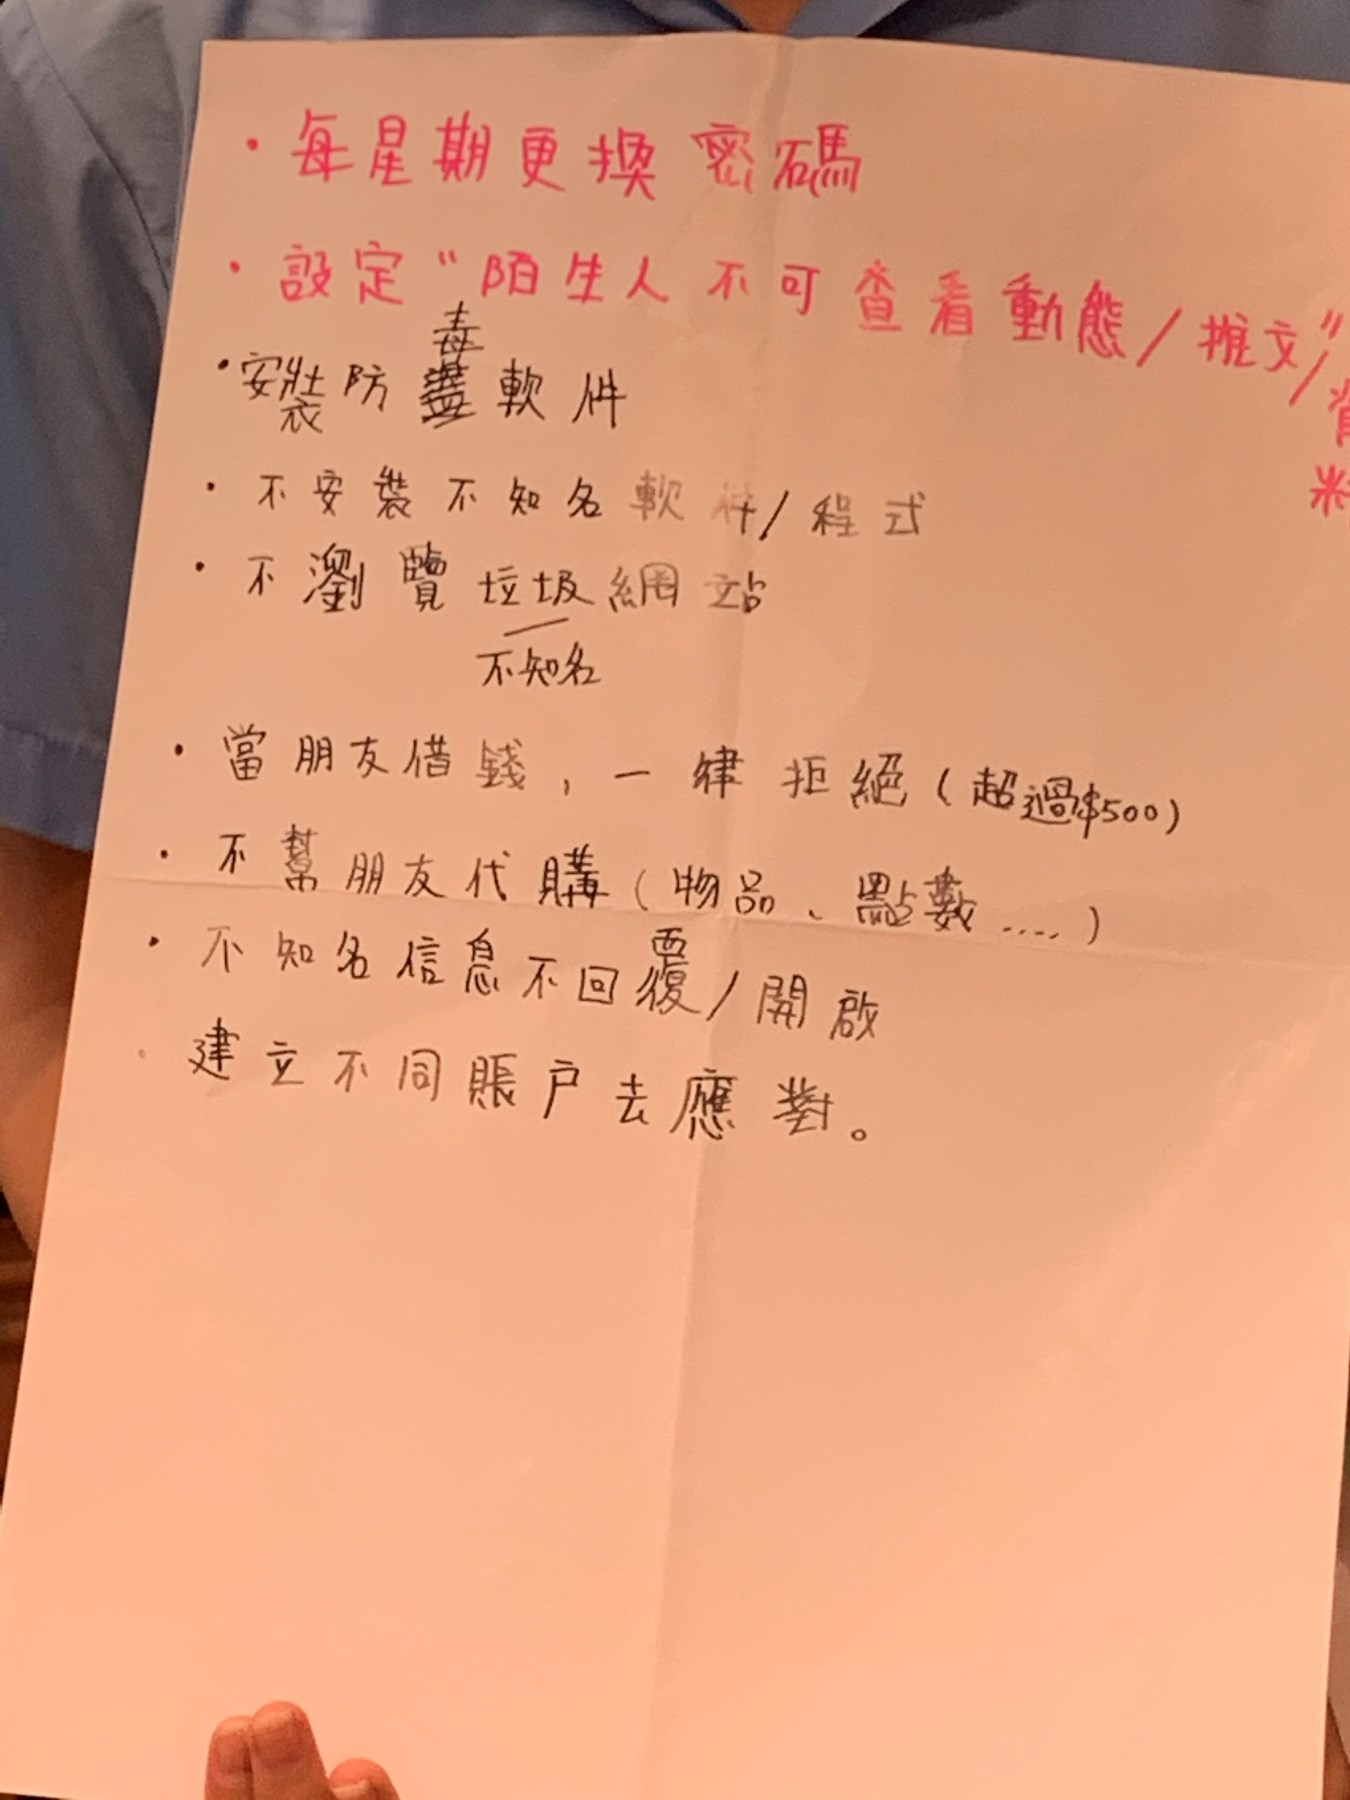 · 每星期更換密碼
· 設定“陌生人不可查看動態/推文”/資料
· 安裝防毒軟件
· 不安裝不知名軟件/程式
· 不瀏覽垃圾網站
不知名
· 當朋友借錢，一律拒絕(超過$500)
· 不幫朋友代購(物品、點數....)
· 不知名信息不回覆/開啟
· 建立不同賬户去應對。